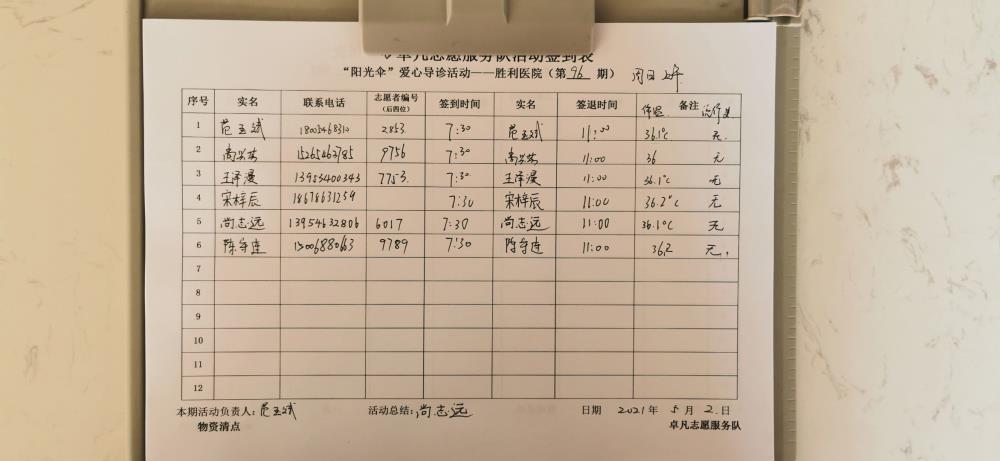 卓凡志愿服务队活动签到表
“阳光伞”爱心导诊活动——胜利医院（第 96 期） 周日
序号 实名 联系电话 志愿者编号（后四位） 签到时间 实名 签退时间 体温 备注
1 范玉斌 2853 7:30 范玉斌 11:00 36.1℃ 无
2 15265462785 9756 7:30 11:00 36 无
3 王泽漫 13953400343 7753 7:30 王泽漫 11:00 36.1℃ 无
4 宋梓辰 18678631259 7:30 宋梓辰 11:00 36.2℃ 无
5 尚志远 13954632806 6017 7:30 尚志远 11:00 36.1℃ 无
6 陈守连 15006880663 9789 7:30 陈守连 11:00 36.2 无
7
8
9
10
11
12
本期活动负责人：范玉斌 活动总结：尚志远 日期 2021年 5月 2日
物资清点 卓凡志愿服务队